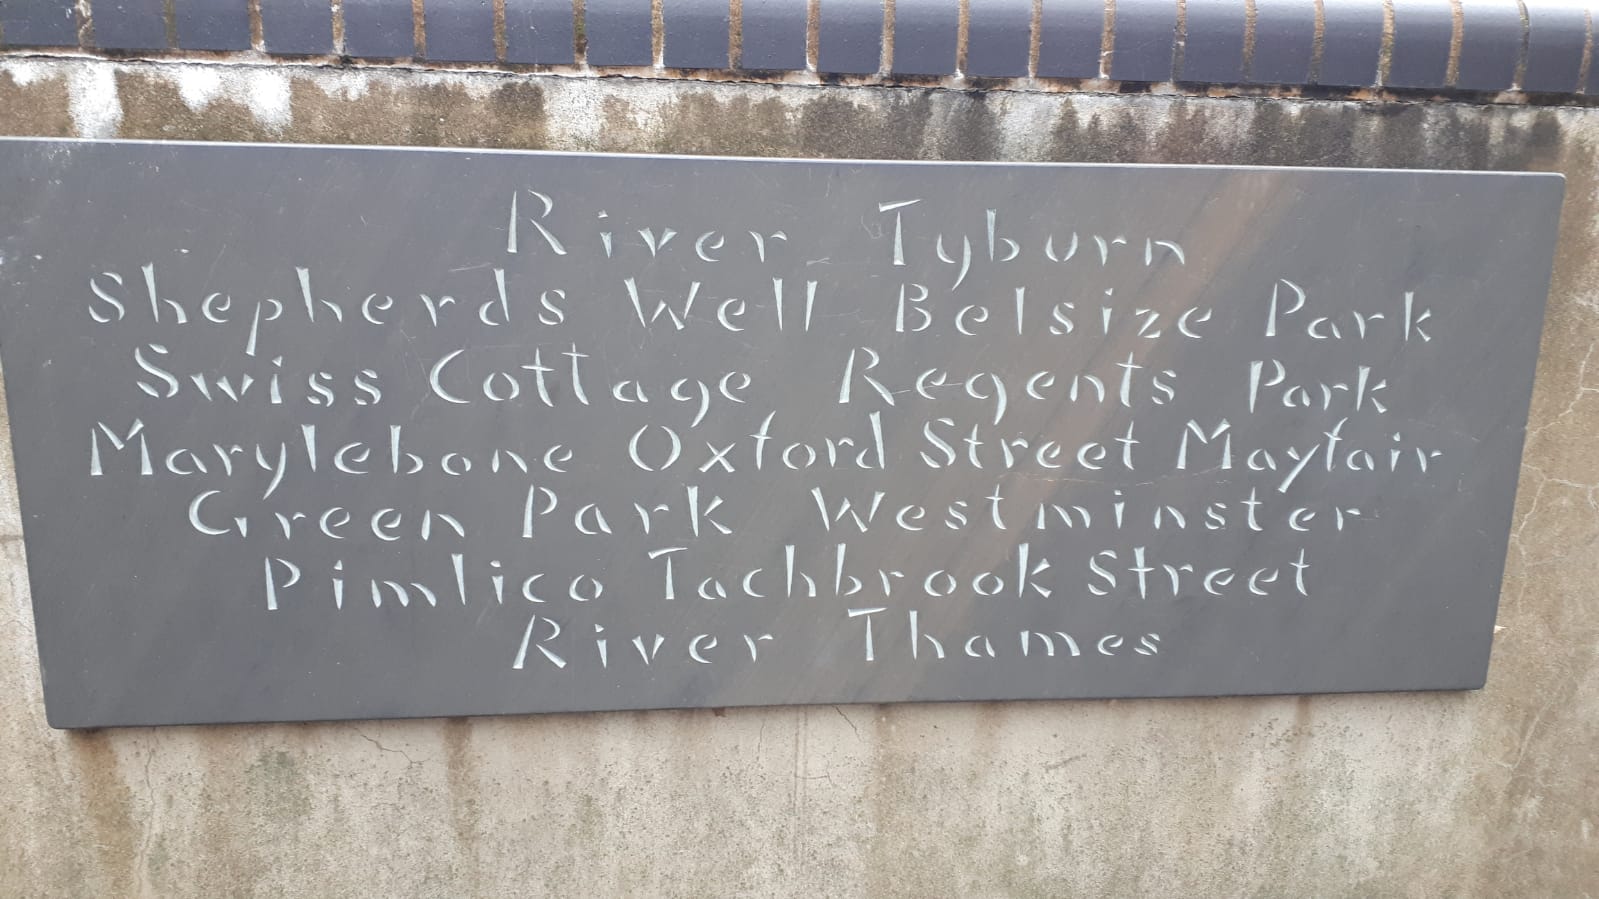 River Tyburn
Shepherds Well Belsize Park
Swiss Cottage Regents Park
Marylebone Oxford Street Mayfair
Green Park Westminster
Pimlico Tachbrook Street
River Thames